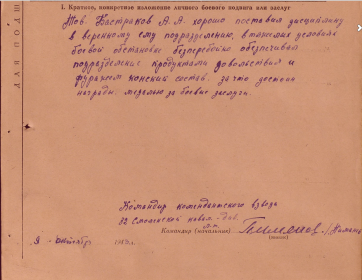 I. Краткое, конкретное изложение личного боевого подвига или заслуг
Тов. Кастраков А.А. хорошо поставив дисциплину
в вверенному ему подразделению, в тяжелых условиях
боевой обстановке бесперебойно обеспечивал
подразделение продуктами довольствия и
фуражем конский состав. за что достоин
награды медалью за боевые заслуги.
Командир комендантского взвода
32 Смоленской кавал. див.
Командир (начальник)
Пименов
9 октября